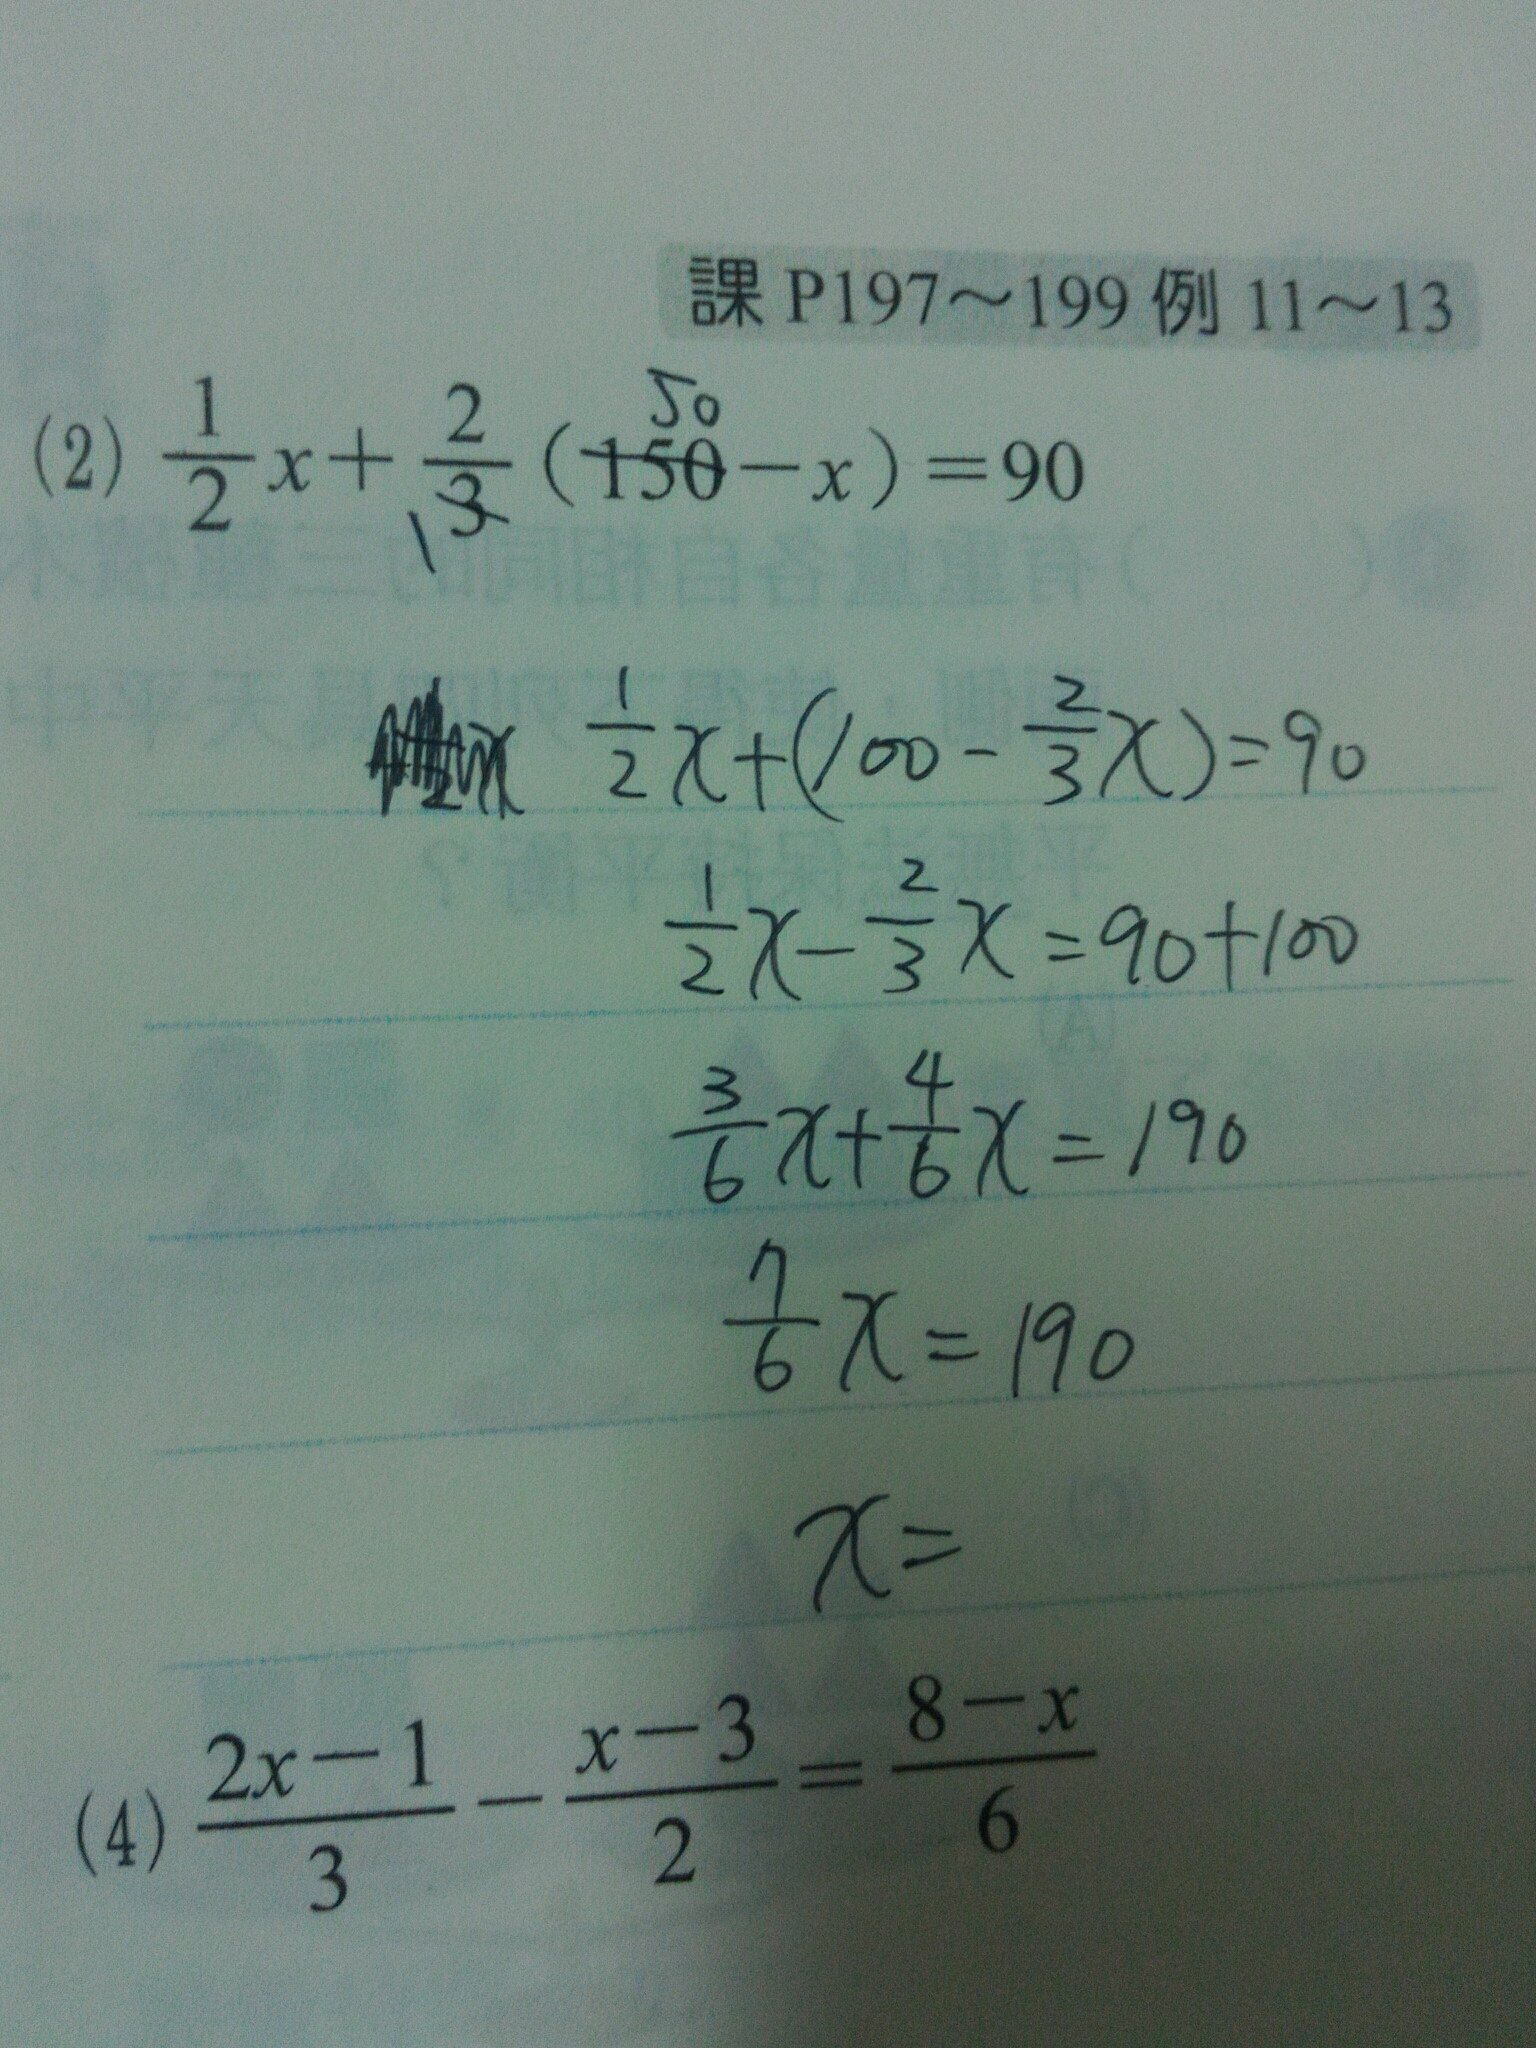 課 P197～199 例 11～13
50
(2) 1/2 x + 2/3 (150 − x) = 90
1
x 1/2 x + (100 - 2/3 x) = 90
1/2 x - 2/3 x = 90 + 100
3/6 x + 4/6 x = 190
7/6 x = 190
x =
(4) (2x − 1)/3 − (x − 3)/2 = (8 − x)/6